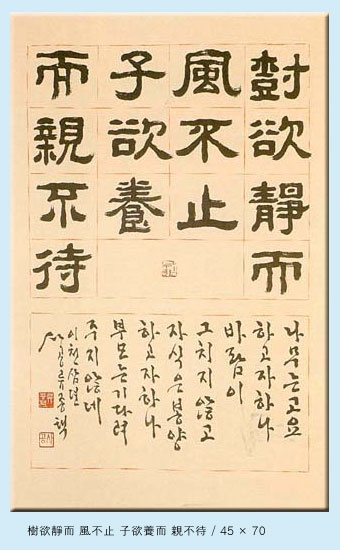 樹欲靜而
風不止
子欲養
而親不待
나무는고요
하고자하나
바람이
그치지않고
자식은봉양
하고자하나
부모는기다려
주지않네
이천삼년
樹欲靜而 風不止 子欲養而 親不待 / 45 × 70